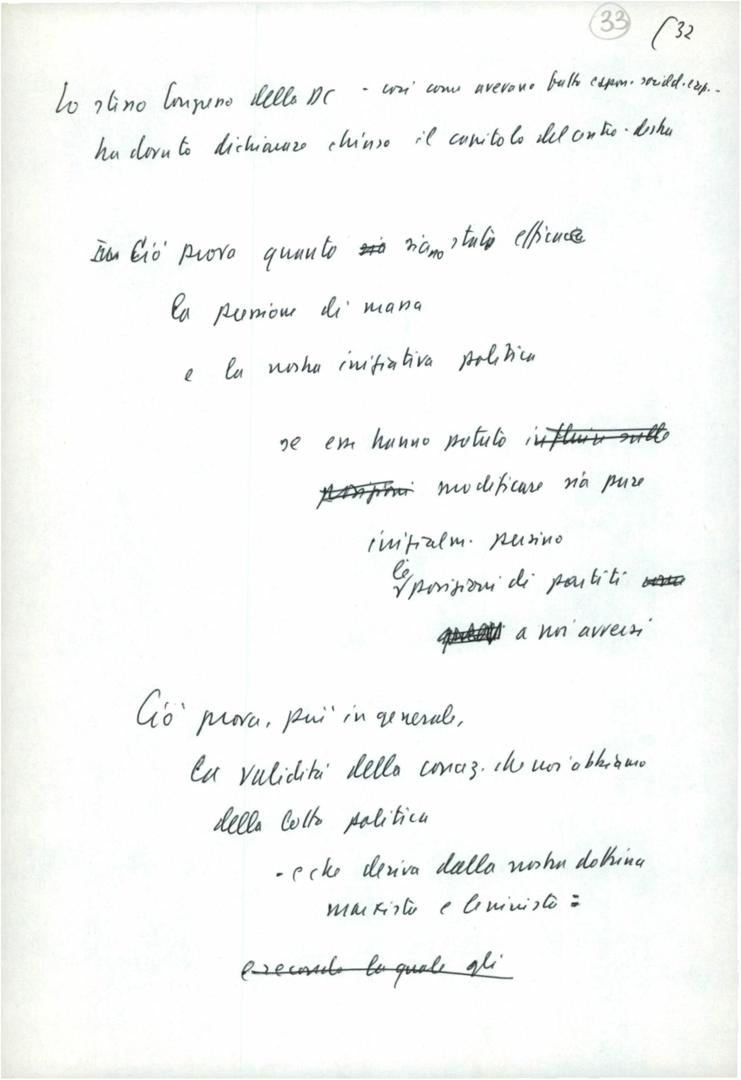 33 32
Lo stesso Congresso della DC - così come avevano fatto espon. sociald. e rep.
ha dovuto dichiarare chiuso il capitolo del centro-destra
Ciò prova quanto siano stati efficaci
la pressione di massa
e la nostra iniziativa politica
se esse hanno potuto influire sulle
posizioni modificare sia pure
inizialm. persino
le
posizioni di partiti
a noi avversi
Ciò prova, più in generale,
la validità della concez. che noi abbiamo
della lotta politica
- e che deriva dalla nostra dottrina
marxista e leninista =
e secondo la quale gli